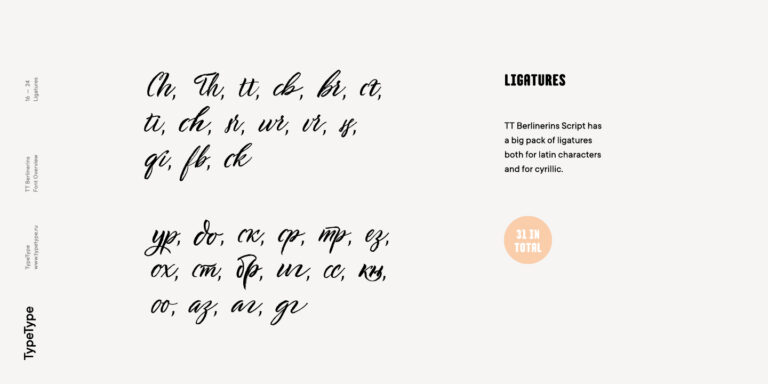 16 — 24
Ligatures
TT Berlinerins
Font Overview
TypeType
www.typetype.ru
TypeType
Ch, Th, tt, cb, br, ct,
ti, ch, sr, wr, vr, ss,
qi, fb, ck
ур, до, ск, ср, тр, ез,
ох, ст, бр, иг, сс, кц,
оо, аз, аг, дг
LIGATURES
TT Berlinerins Script has
a big pack of ligatures
both for latin characters
and for cyrillic.
31 IN
TOTAL